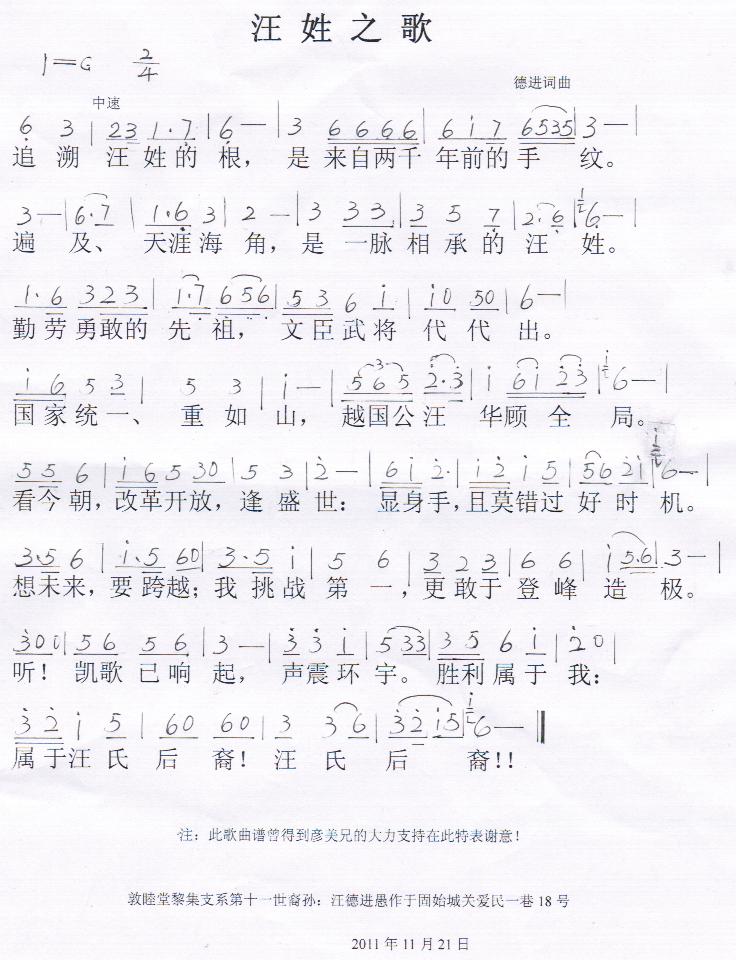 汪姓之歌
1=G 2/4
德进词曲
中速
6 3 | 23 1·7 | 6— | 3 6666 | 617 6535 | 3— |
追溯汪姓的根，是来自两千年前的手纹。
3— | 6·7 | 1·6 3 | 2— | 3 33 | 3 5 7 | 2·6 | 6— |
遍及、天涯海角，是一脉相承的汪姓。
1·6 323 | 1·7 656 | 53 6 i | i0 50 | 6— |
勤劳勇敢的先祖，文臣武将代代出。
i6 5 3 | 5 3 | i— | 565 2·3 | i 6i 23 | 6— |
国家统一、重如山，越国公汪华顾全局。
55 6 | i65 30 | 5 3 | 2— | 6i 2· | i2 i 5 | 56 2i | 6— |
看今朝，改革开放，逢盛世：显身手，且莫错过好时机。
3·5 6 | i·5 60 | 3·5 i | 5 6 | 3 2 3 | 6 6 | i 5·6 | 3— |
想未来，要跨越；我挑战第一，更敢于登峰造极。
300 | 56 56 | 3— | 3 3 i | 5 33 | 35 6 i | 20 |
听！凯歌已响起，声震环宇。胜利属于我：
32 i 5 | 60 60 | 3 36 | 32i5 | 6— ‖
属于汪氏后裔！汪氏后裔！！
注：此歌曲谱曾得到彦美兄的大力支持在此特表谢意！
敦睦堂黎集支系第十一世裔孙：汪德进愚作于固始城关爱民一巷18号
2011年11月21日